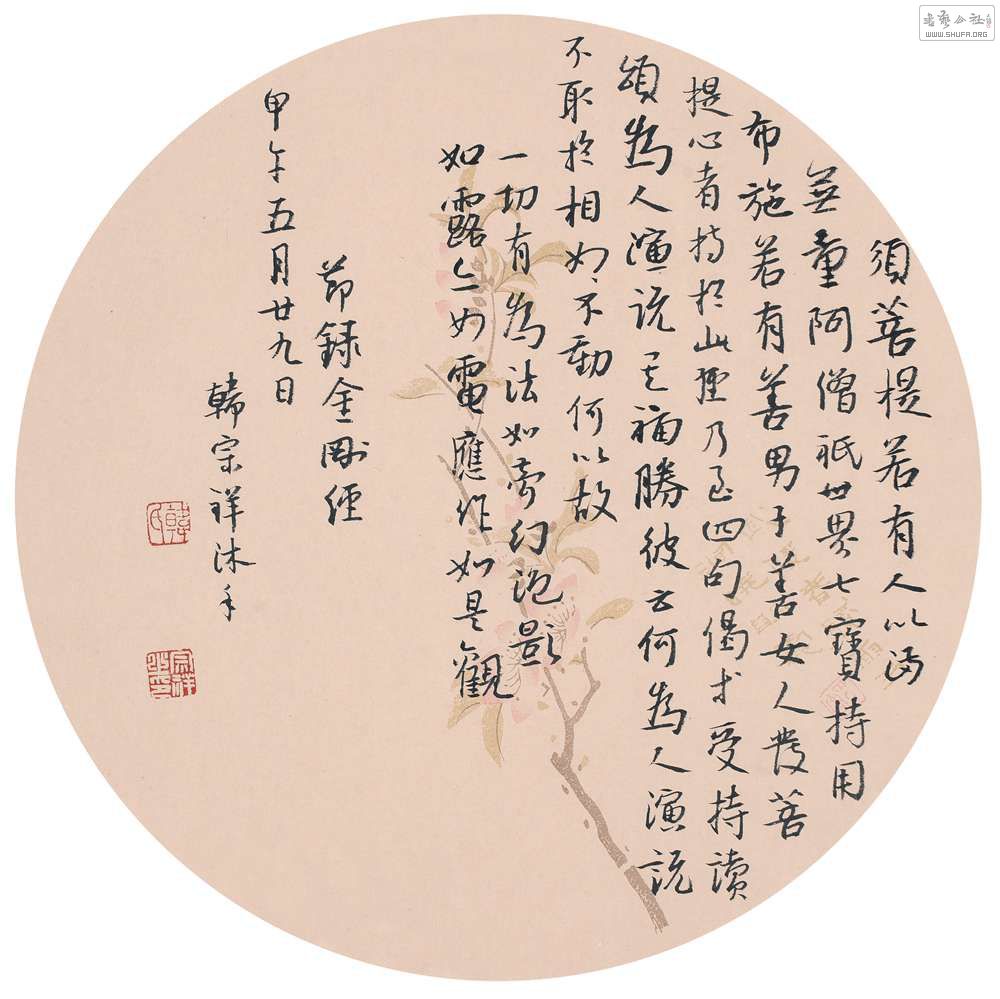 須菩提若有人以滿
無量阿僧祇世界七寶持用
布施若有善男子善女人發菩
提心者持於此經乃至四句偈等受持讀
頌為人演說其福勝彼云何為人演說
不取於相如如不動何以故
一切有為法如夢幻泡影
如露亦如電應作如是觀
節録金剛經
甲午五月廿九日
韓宗祥沐手
韓氏
書藝公社
WWW.SHUFA.ORG